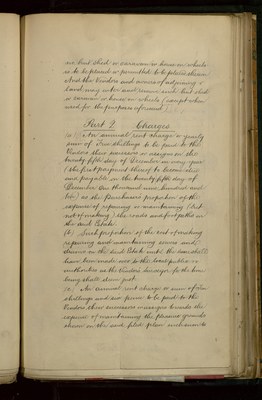 no hut shed or caravan or house on wheels
is to be placed or permitted to be placed thereon
And the Vendors and owners of adjoining
land may enter and remove such hut shed
or caravan or house on wheels (except when
used for the purposes aforesaid
Part 2 Charges
(a) An annual rent charge or yearly
sum of Ten shillings to be paid to the
Vendors their successors or assigns on the
twenty fifth day of December in every year
(the first payment thereof to become due
and payable on the twenty fifth day of
December One thousand nine hundred and
) as the Purchasers proportion of the
expense of repairing or maintaining (but
not of making) the roads and footpaths on
the said Estate
(b) Such proportion of the cost of making
repairing and maintaining sewers and
drains on the said Estate until the same shall
have been made over to the local public
authorities as the Vendors Surveyor for the time
being shall deem just
(c) An annual rent charge or sum of
shillings and six pence to be paid to the
Vendors their successors or assigns towards the
expense of maintaining the pleasure grounds
shown on the said plot